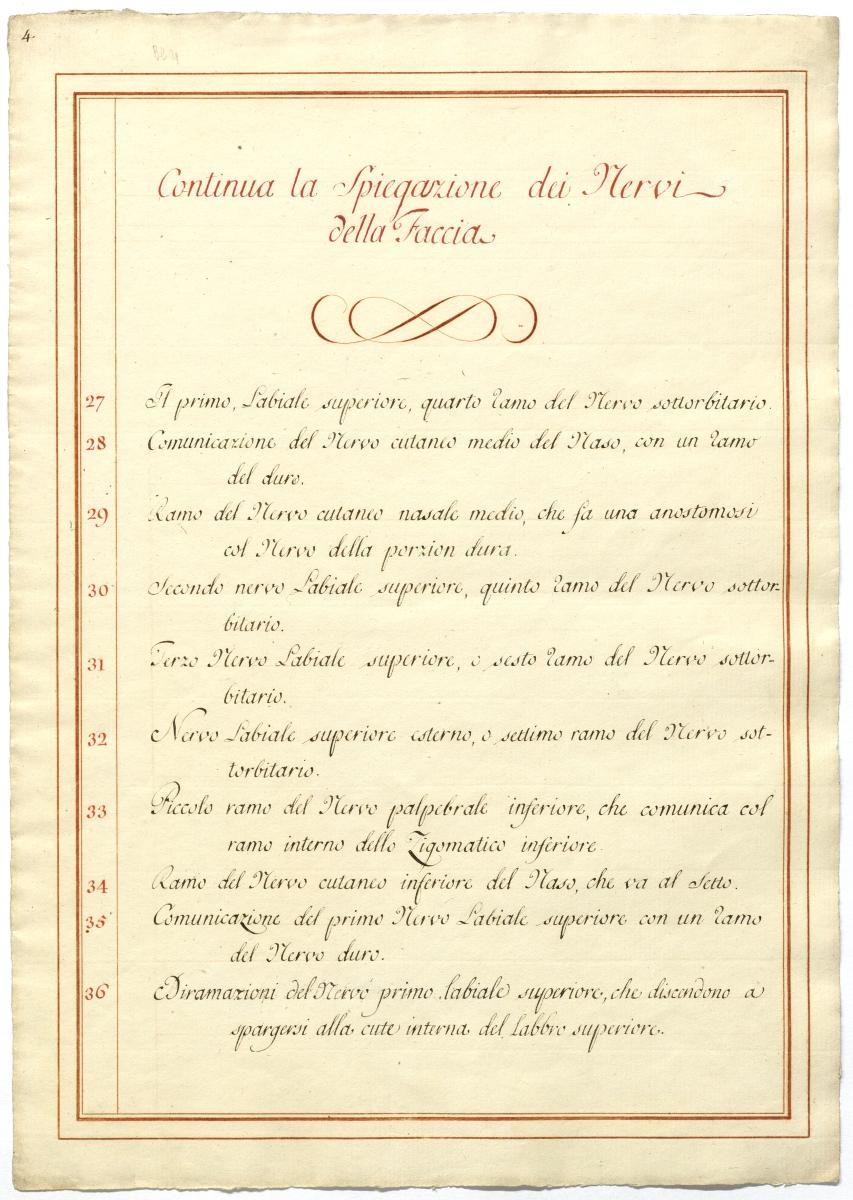 4.
Continua la Spiegazione dei Nervi
della Faccia
27 Il primo, Labiale superiore, quarto ramo del Nervo sottorbitario.
28 Comunicazione del Nervo cutaneo medio del Naso, con un ramo
del duro.
29 Ramo del Nervo cutaneo nasale medio, che fa una anostomosi
col Nervo della porzion dura.
30 Secondo nervo Labiale superiore, quinto ramo del Nervo sottor-
bitario.
31 Terzo Nervo Labiale superiore, o sesto ramo del Nervo sottor-
bitario.
32 Nervo Labiale superiore esterno, o settimo ramo del Nervo sot-
torbitario.
33 Piccolo ramo del Nervo palpebrale inferiore, che comunica col
ramo interno dello Zigomatico inferiore.
34 Ramo del Nervo cutaneo inferiore del Naso, che va al Setto.
35 Comunicazione del primo Nervo Labiale superiore con un ramo
del Nervo duro.
36 Diramazioni del Nervo primo labiale superiore, che discendono a
spargersi alla cute interna del labbro superiore.